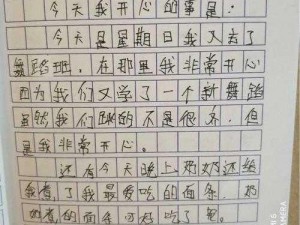 今天我开心的事是：
今天是星期日我又去了
舞蹈班，在那里我非常开心
因为我们又学了一个新舞蹈
虽然我们跳的不是很好，但
是我非常开心。
还有今天晚上奶奶还给
我煮了我最爱吃的面条，奶
奶煮的面条可好吃了
MI 6
CAMERA